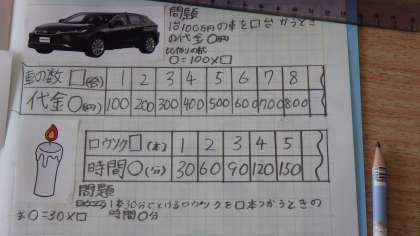 問題
1台100万円の車を□台 かうとき
の代金○円
比例の式
○=100×□
車の数 □(台) 1 2 3 4 5 6 7 8
代金○(円) 100 200 300 400 500 600 700 800
ロウソク□(本) 1 2 3 4 5
時間○(分) 30 60 90 120 150
問題
1本30分でとけるロウソクを□本つかうときの
時間○分
式○=30×□